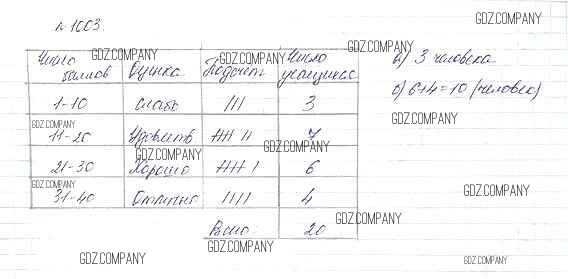 № 1003.
GDZ.COMPANY
Число баллов Оценка Подсчет Число учащихся
GDZ.COMPANY GDZ.COMPANY GDZ.COMPANY
а) 3 человека
1-10 слабо III 3
б) 6+4=10 (человек)
GDZ.COMPANY GDZ.COMPANY
11-20 Удовлетв HHT II 7
GDZ.COMPANY GDZ.COMPANY
21-30 Хорошо HHT I 6
GDZ.COMPANY GDZ.COMPANY
31-40 Отлично IIII 4
GDZ.COMPANY
Всего: 20
GDZ.COMPANY
GDZ.COMPANY GDZ.COMPANY